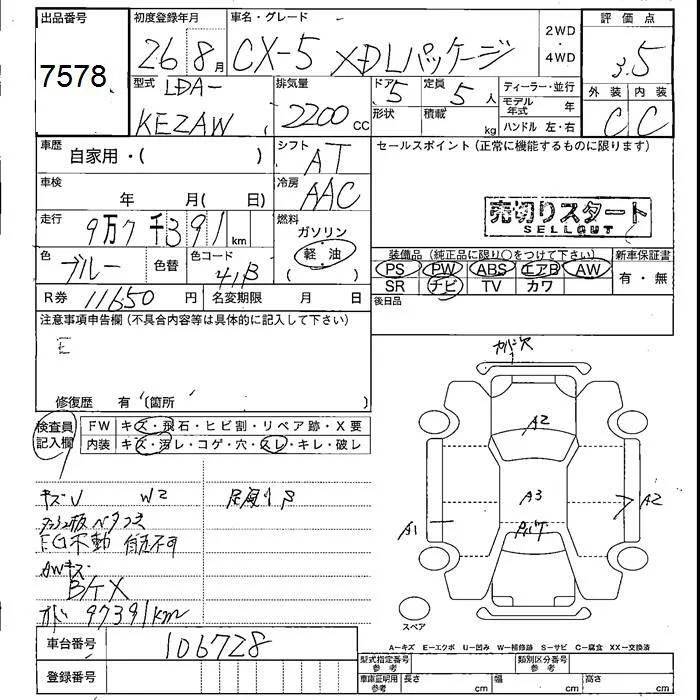 出品番号 初度登録年月 車名・グレード 評価点
7578 26 8月 CX-5 XDLパッケージ 2WD・4WD 3.5
型式 LDA- 排気量 ドア 5 定員 5人 ディーラー・並行 外装 内装
KE2AW 2200cc 形状 積載 kg モデル年式 年 C C
ハンドル 左・右
車歴 自家用・( ) シフト AT セールスポイント(正常に機能するものに限ります)
車検 年 月( 日) 冷房 AAC
売切りスタート
SELLOUT
走行 9万7千391km 燃料 ガソリン
軽・油
( )
色 ブルー 色替 色コード 41B 装備品(純正品に限り○をつけて下さい) 新車保証書
PS PW ABS エアB AW 有・無
SR ナビ TV カワ
R券 11650円 名変期限 月 日 後日品
注意事項申告欄(不具合内容等は具体的に記入して下さい)
E
修復歴 有(箇所 )
検査員記入欄 FW キズ・飛石・ヒビ割・リペア跡・X要
内装 キズ・汚レ・コゲ・穴・スレ・キレ・破レ
キズU W2
EG不動
AWキズ
97391km
A2
A3
A1
A2
スペア
A-キズ E-エクボ U-凹み W-補修跡 S-サビ C-腐食 XX-交換済
車台番号 106728
登録番号
型式指定番号 参考 類別区分番号 参考
車庫証明用 参考 長さ cm 幅 cm 高さ cm